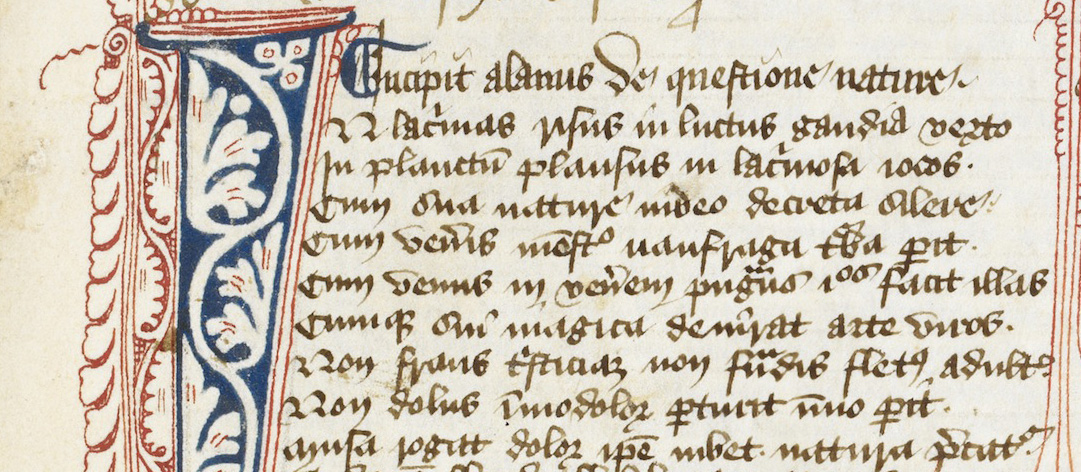 Incipit alanus de questione nature.
N lac̄imas risus in luctus gaudia verto
In planctū plausus in lac̄imosa iocos.
Cum sua nature video decreta silere.
Cum veneris mōst°  naufraga t̄ba perit.
Cum venus in venerem pugnās ıos facit illas
Cumq̨ sui magica deuirat arte viros.
Non fraus t̄sticiaȝ non fraudis fletꝰ adult
Non dolus īmo dolor parturit īmo parit.
musa rogat dolor ip̄e iubet natura p̄cat